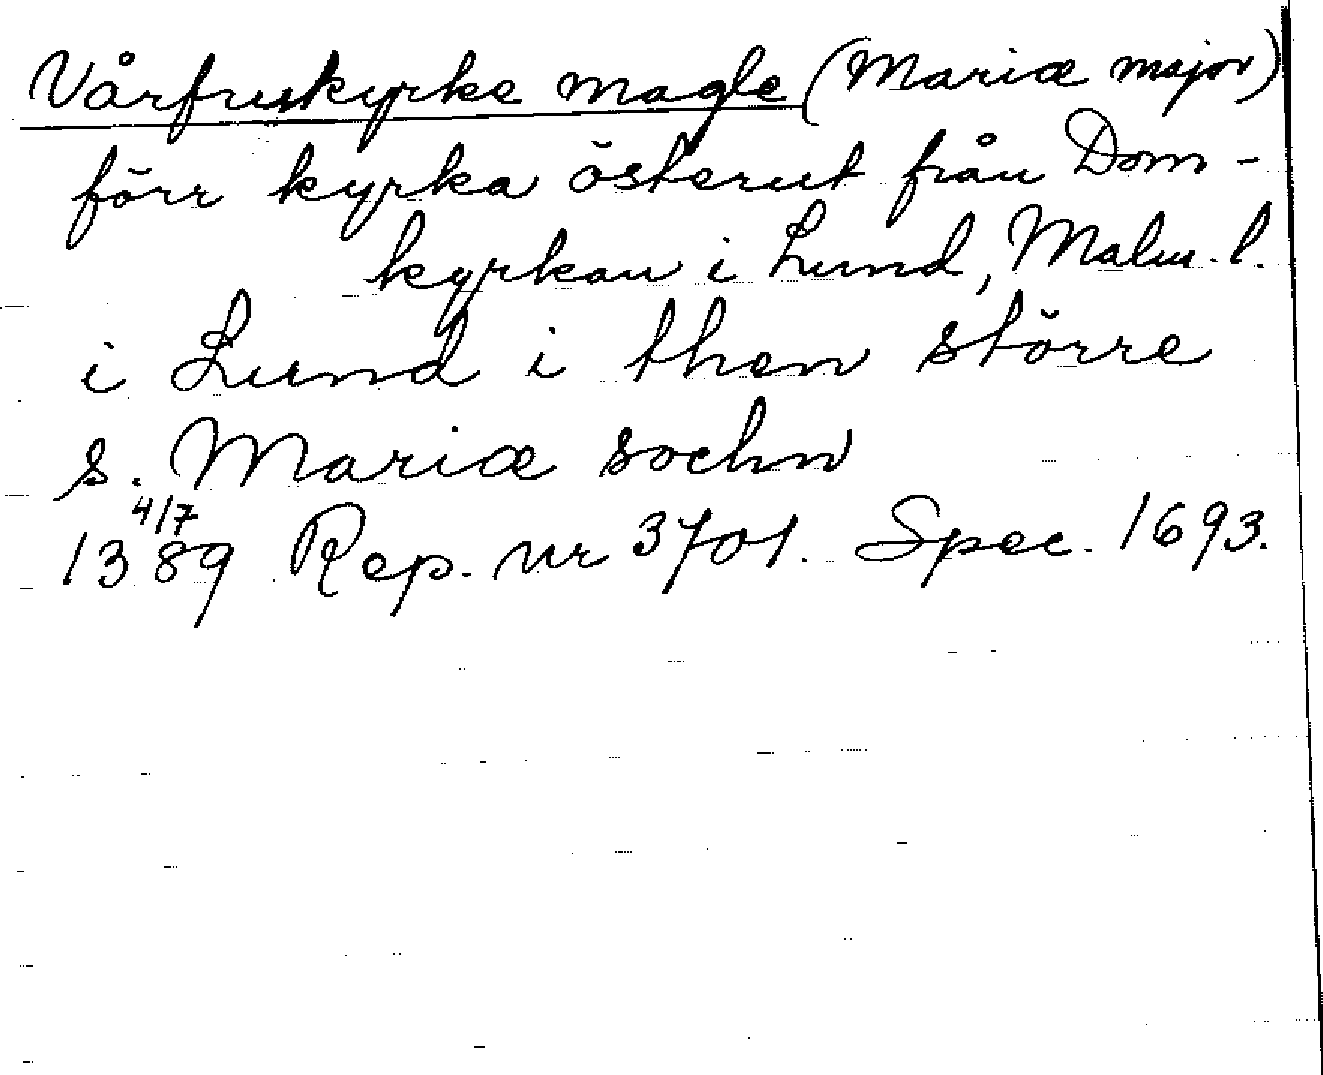 Vårfruekyrke magle (Mariæ major)
förr kyrka österut från Dom-
kyrkan i Lund, Malm. l.
i Lund i then större
s. Mariæ sochn
4/7
1389 Rep. nr 3701. Spec. 1693.